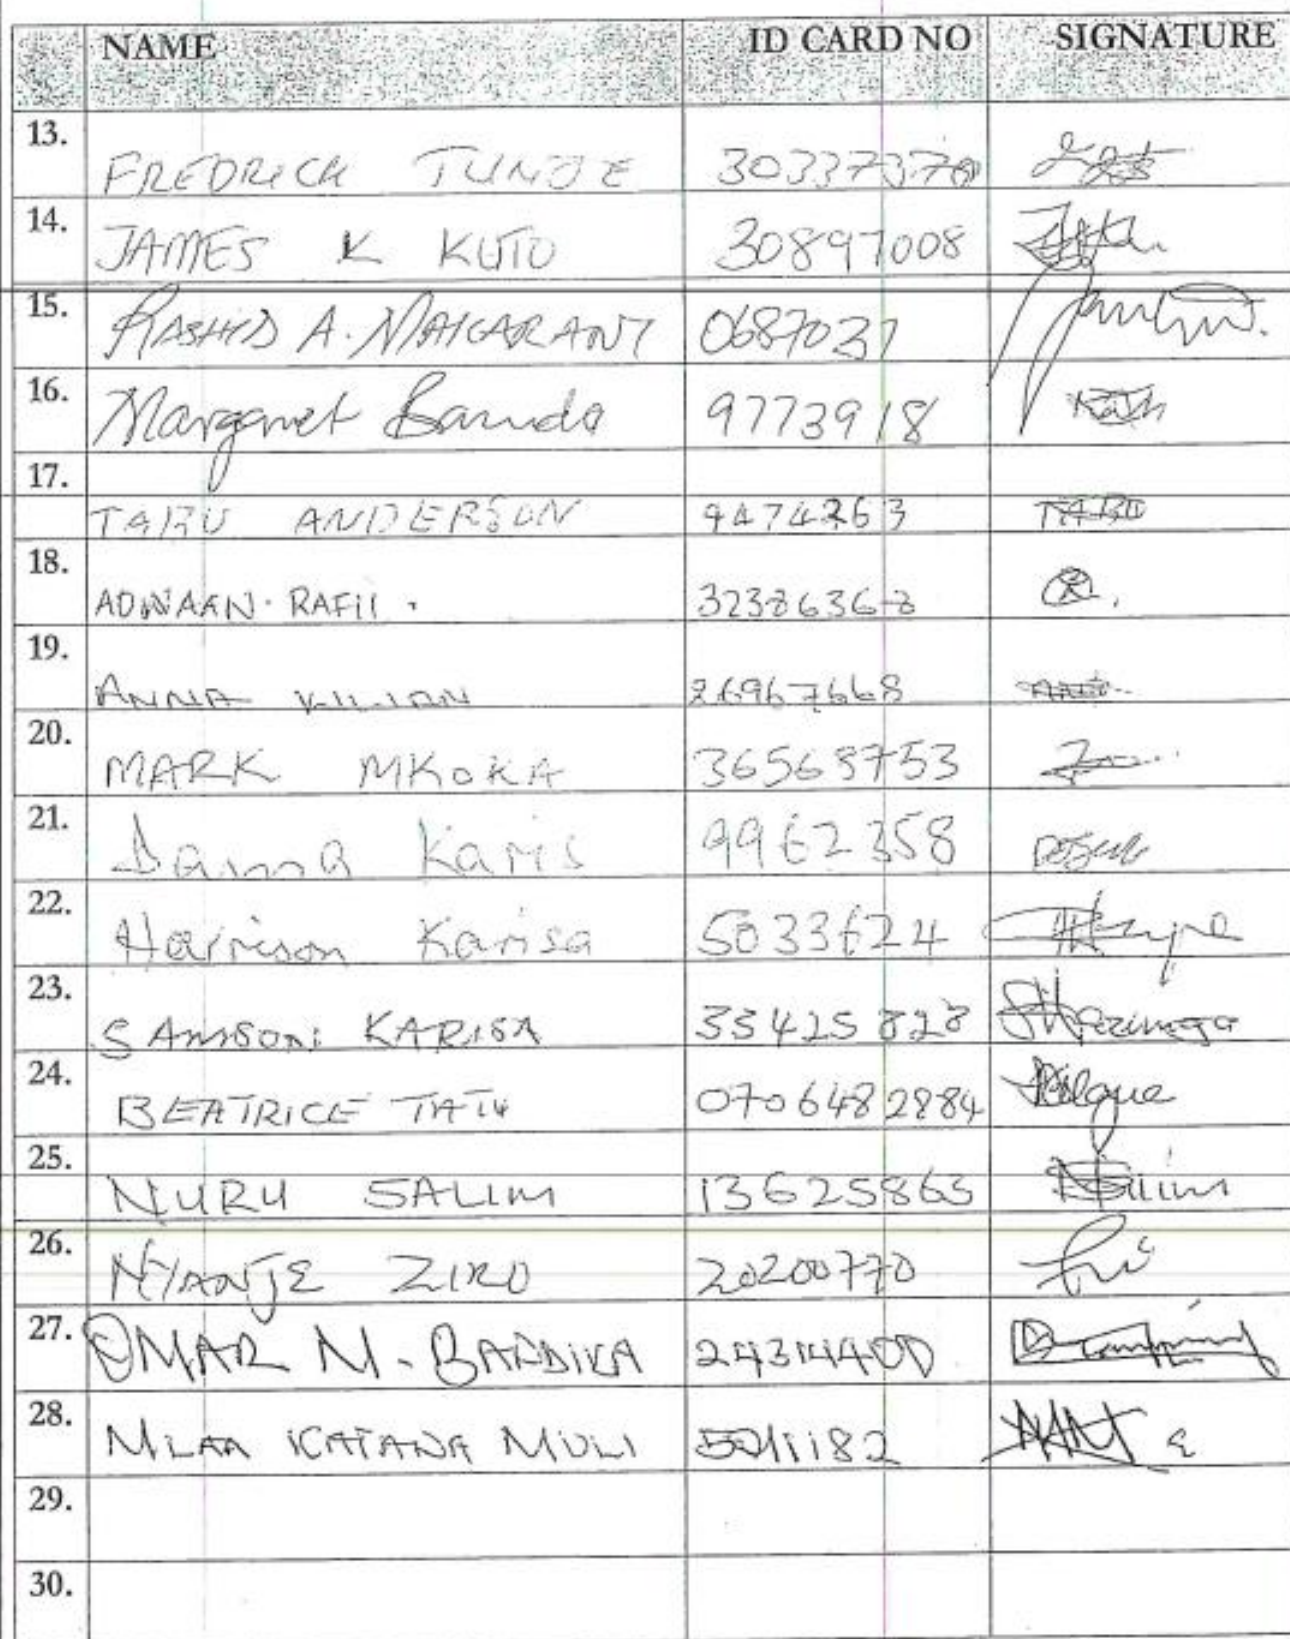 NAME ID CARD NO SIGNATURE
13. FREDRICK TUNJE 30337370
14. JAMES K KUTO 30897008
15. RASHID A. MAKARANI 0687031
16. Margaret Banda 9773918
17. TABU ANDERSON 9474263 TABU
18. ADNAAN. RAFII. 32386368
19. ANNA KILIAN 26967668
20. MARK MKOKA 36568753
21. Dama Karis 9962358
22. Harrison Karisa 5033624
23. SAMSON KARISA 33425828
24. BEATRICE TATU 0706482984
25. NURU SALIM 13625863
26. NYANJE ZIRO 20200770
27. OMAR M. BARDIKA 24314400
28. MLAA KATANA MULI 5011182
29.
30.